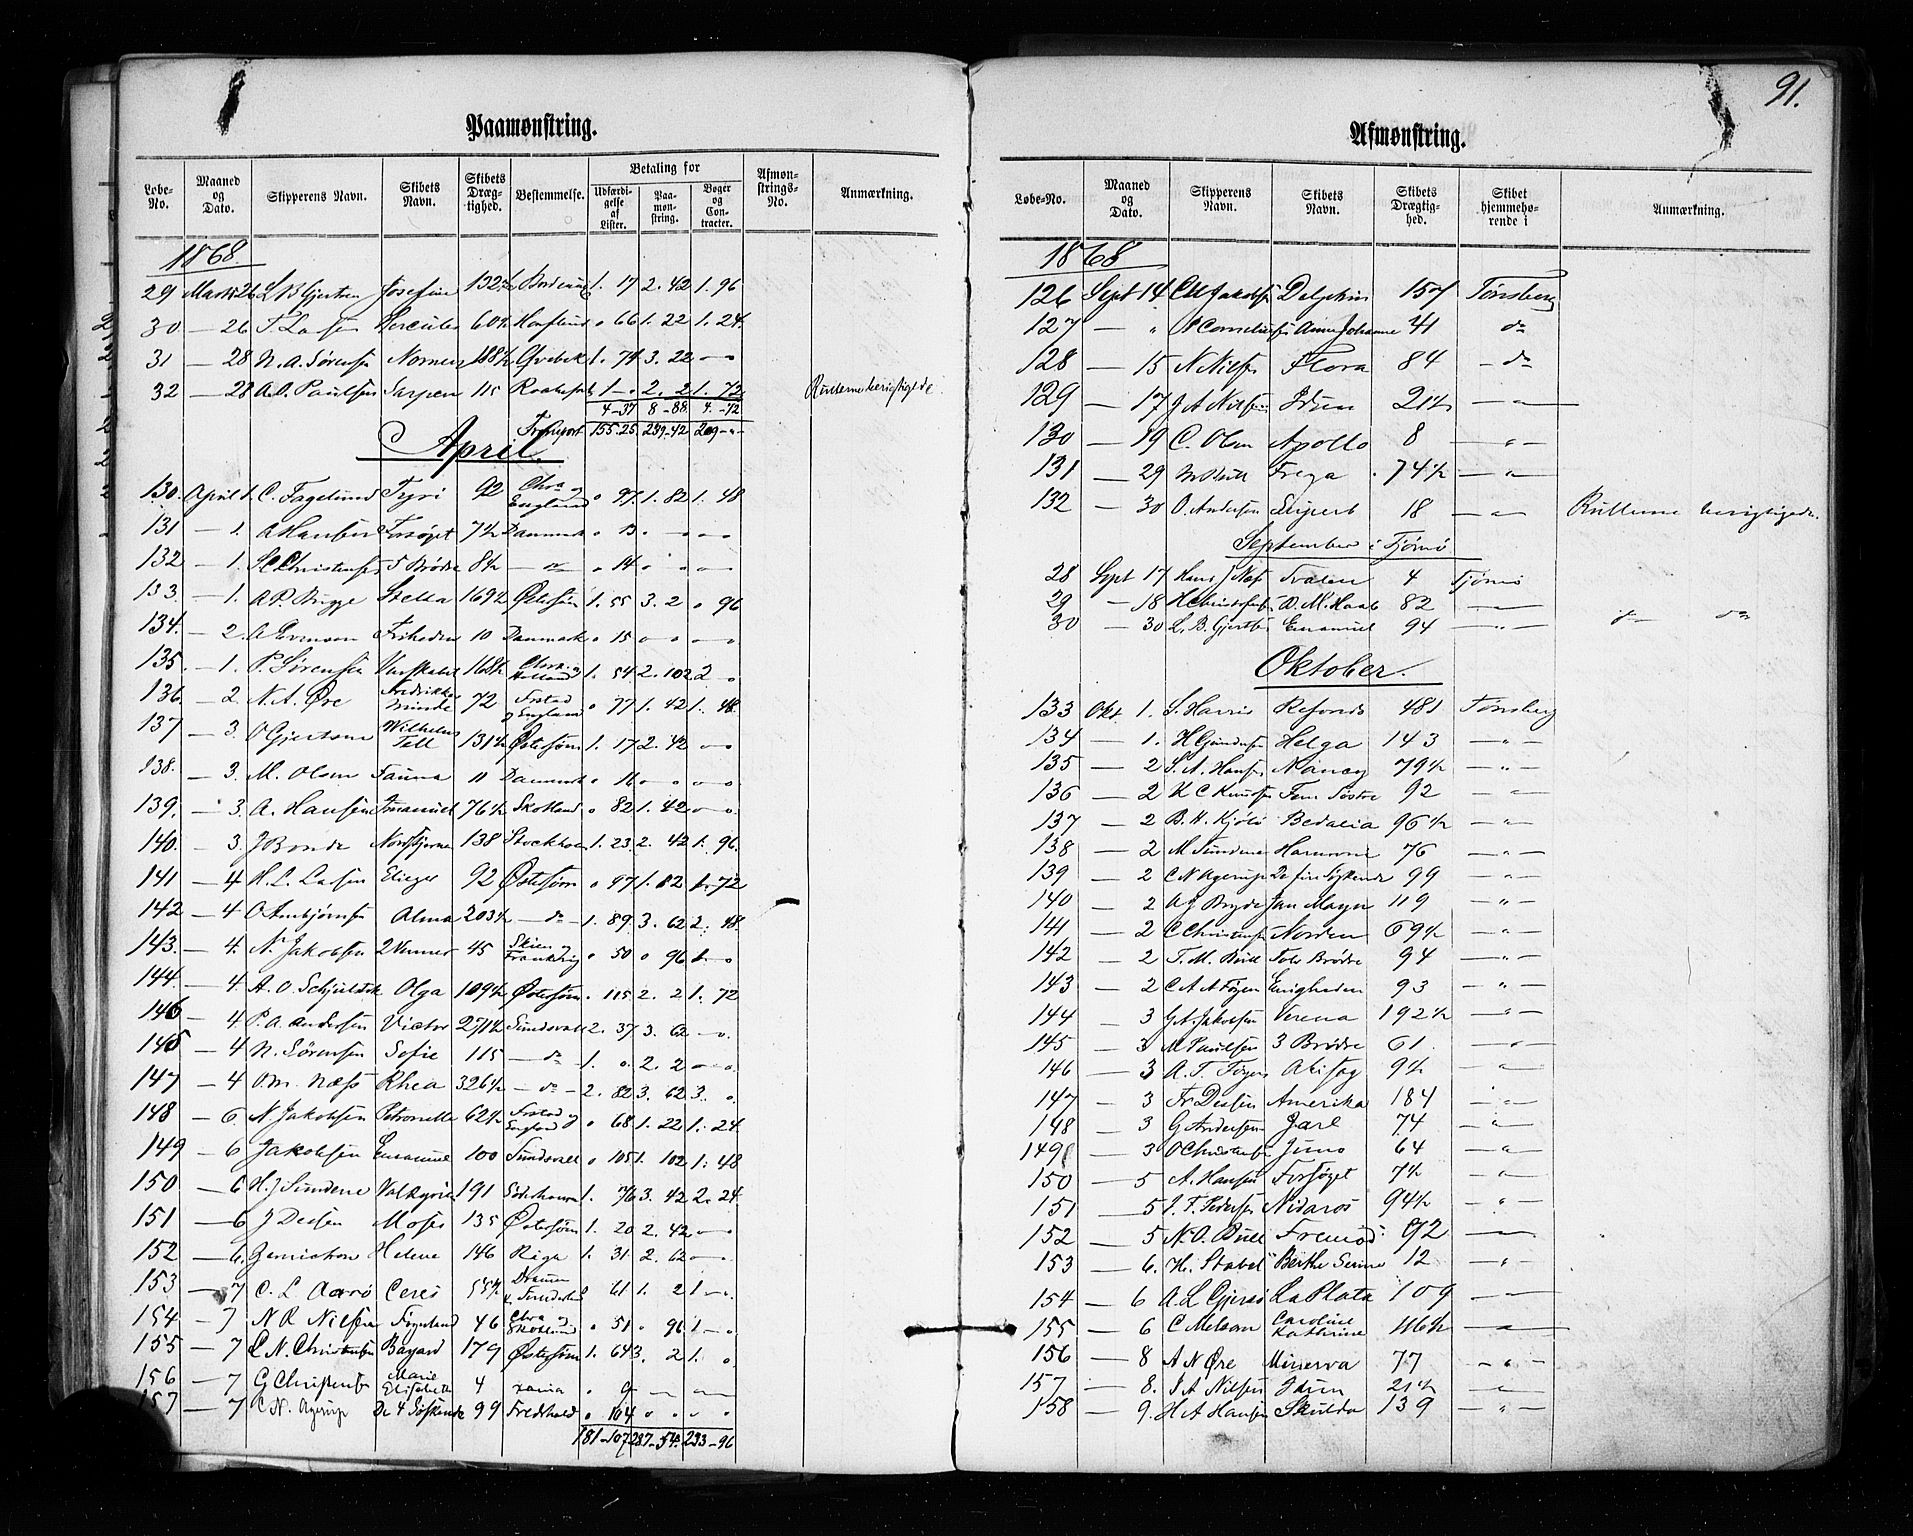 91.
Paamønstring.
Løbe-No. Maaned og Dato. Skipperens Navn. Skibets Navn. Skibets Drægtighed. Bestemmelse. Betaling for Udfærdigelse af Lister. Paamønstring. Bøger og Contracter. Afmønstrings-No. Anmærkning.
1868.
29 Marts 26 L B Gjertsen Josefine 132½ Bordeaux 1. 17 2. 42 1. 96
30 — 26 T Larsen Hercules 60½ " 66 1. 22 1. 24.
31 — 28 N. A. Sørensen Nornen 188½ Qvebek 1. 74 3. 22 — "
32 — 28 A. O. Paulsen Sarpen 115 1 — " 2. 2 1. 72 Rullerne berigtigede.
4-37 8-88 4-42
Transport 155.25 239-42 209 - "
April.
130. April 1. C. Fagelund Tyri 92 Chra og England " 97. 1. 82 1. 48
131 — 1. A Hansen Forsøget 7½ Danmark " 13 " — " "
132 — 1. S C Christensen 5 Brødre 8½ — " — " 14 " " — "
133. — 1. A P. Brygge Stella 169½ Østersøen 1. 55 3. 2 " 96
134. — 2. A Evensen Friheden 10 Danmark " 15 " " — "
135. — 1. P. Sørensen Varskabet 168½ Chra. og Holland 1. 54 2. 102 2 — "
136. — 2 N. A. Øre Fredrikke Minde 72 Frstad og England " 77 1. 42 1. 48
137 — 3. O Gjertsen Wilhelm Tell 131½ Østersøen 1. 17 2. 42 — "
138. — 3. M. Olsen Fauna 11 Danmark " 16 " " — "
139. — 3. A. Hansen Imanuel 76½ Skotland " 82 1. 42 — "
140. — 3. J Bonde Nordstjerne 138 Stockholm 1. 23. 2. 42 1. 96.
141 — 4 H. L. Larsen Elieser 92 Østersøen " 97 1. 82 1. 72
142 — 4. O Ambjørnsen Alma 203½ — do — 1. 89. 3. 62 2. 48.
143. — 4. N. Jakobsen 2 Venner 45 Skien og Frankrig " 50 " 96 1. — "
144. — 4. A. O. Schjelderik Olga 109½ Østersøen " 115 2. 2 1. 72
146 — 4. P. A. Andersen Victor 271½ Sundsvall 2. 37 3. 62 — ".
145 — 4 N. Sørensen Sofie 115 — do — 1. " 2. 2 — "
147 — 4 O. M. Næss Rhea 326½ — do — 2. 82 3. 62 3. "
148 — 6 N Jakobsen Petronelle 62½ Frstad og England " 68 1. 22 1. 24.
149 — 6 Jakobsen Emanuel 100 Sundsvall " 105 1. 102 1. 48
150 — 6 H. J Sundene Valkyrie 191 Søderhamn 1. 76 3. 42 2. 24.
151 — 6 J Dessen Moses 135 Østersøen 1. 20 2. 42 — "
152 — 6. Henrickson Helene 146 Riga 1. 31 2. 62 — "
153 — 7 C. L. Aarø Ceres 55½ Drammen " 61 1. 2 1 — ".
154 — 7 N R Nilsen Føyenland 46 Chra og Skotland " 51 " 96 1 — "
155 — 7 L. N. Christensen Bayard 179 Østersøen 1. 64 3. 2 1. "
156 — 7 G Christensen Marie Elisabeth 4 " 9 — —
157 — 7 C N. Agerup De 4 Søskende 99 Fredshald " 104 " " "
181-107 287-54 233-96
Afmønstring.
Løbe-No. Maaned og Dato. Skipperens Navn. Skibets Navn. Skibets Drægtighed. Skibet hjemmehørende i Anmærkning.
1868
126 Sept 14 C M Jakobsen Delphin 157 Tønsberg
127 — " A Cornelius Anne Johanne 41 do
128 — 15 N Nilsen Flora 84 — do
129 — 17 J A Nilsen Idun 21½ — " —
130 — 19 C. Olsen Apollo 8 — " —
131 — 29 M Bull Freya 74½ — " —
132 — 30 O. Andersen Leipert 18 — " — Rullerne berigtigede.
September i Tjømø
28 Sept 17 Hans J Næs Svalen 4 Tjømø
29 — 18 H Christofersen O. M. Haab 82 — " —
30 — 30 L. B. Gjertsen Emanuel 94 — " — do
Oktober.
133 Okt. 1. S. Harris Reforeds 481 Tønsberg
134 — 1. H Gundersen Helga 143 — " —
135 — 2 S. A. Hansen Nancy 79½ — " —
136 — 2 H C Knudsen Fem Søstre 92 — " —
137 — 2 B. H. Kjølø Bedalia 96½ — " —
138 — 2 M Sundene Harmonie 76 — " —
139 — 2 C N Agerup De fire Søskende 99 — " —
140 — 2 A J Bryde Jan Mayn 119 — " —
141 — 2 C Christensen Norden 69½ — " —
142 — 2 T. M. Bull Tolv Brødre 94 — " —
143 — 2 C A A Føyen Enigheden 93 — " —
144 — 3 G A. Jakobsen Verena 192½ — " —
145 — 3 M Paulsen 3 Brødre 61. — " —
146 — 3 A. T. Føyen Abisag 9½ — " —
147 — 3 Fr Dessen Amerika 184 — " —
148 — 3 G Andersen Jarl 74 — " —
149 — 3 O Christensen Juno 64 — " —
150 — 5 A. Hansen Forsøget 7½ — " —
151 — 5 J. F. Pedersen Nidaros 94½ — " —
152 — 5 N. O. Bull Fremad 92 — " —
153 — 6. H. Stabel Berthe Serine 12 — " —
154 — 6 A. L Gjersø La Plata 109 — " —
155 — 6 C Melsom Caroline Kathrine 116½ — " —
156 — 8 A N Øre Minerva 77 — " —
157 — 8. J A Nilsen Idun 21½ — " —
158 — 9. H A Hansen Skulda 139 — " —